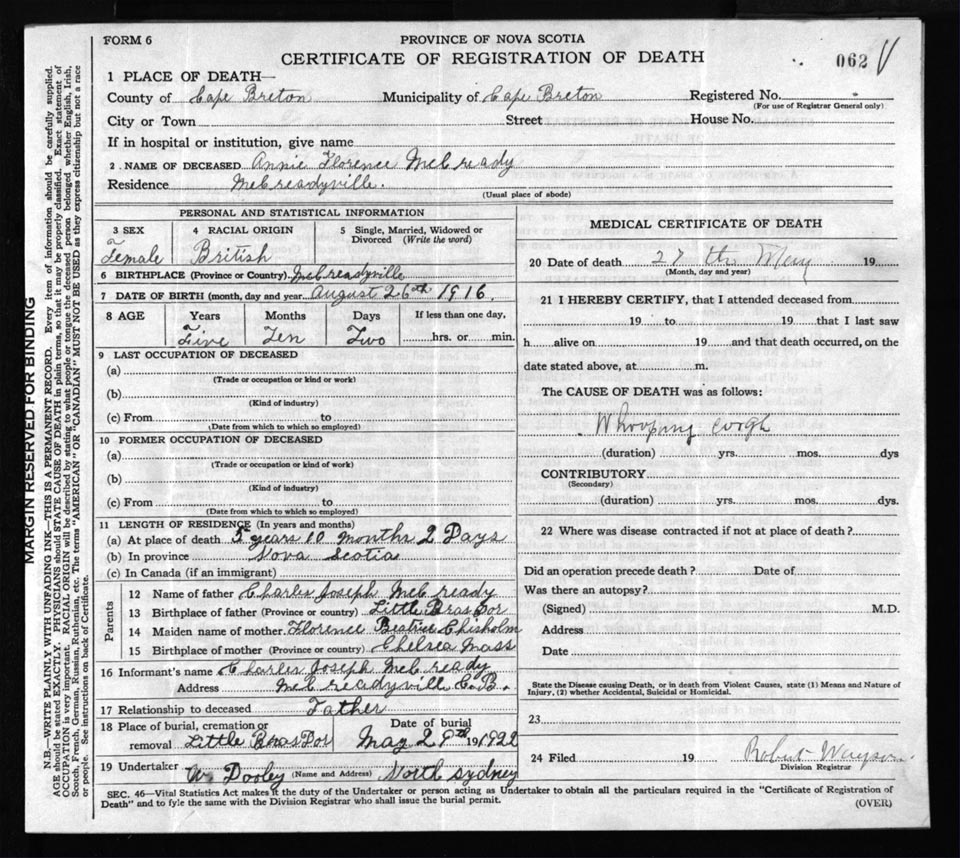 FORM 6
PROVINCE OF NOVA SCOTIA
CERTIFICATE OF REGISTRATION OF DEATH
062
1 PLACE OF DEATH—
County of Cape Breton Municipality of Cape Breton Registered No.
(For use of Registrar General only)
City or Town Street House No.
If in hospital or institution, give name
2. NAME OF DECEASED Annie Florence McCready
Residence McCreadyville.
(Usual place of abode)
PERSONAL AND STATISTICAL INFORMATION
3 SEX 4 RACIAL ORIGIN 5 Single, Married, Widowed or Divorced (Write the word)
Female British
6 BIRTHPLACE (Province or Country) McCreadyville
7 DATE OF BIRTH (month, day and year August 26th 1916
8 AGE Years Months Days If less than one day,
Five Ten Two hrs. or min.
9 LAST OCCUPATION OF DECEASED
(a)
(Trade or occupation or kind or work)
(b)
(Kind of industry)
(c) From to
(Date from which to which so employed)
10 FORMER OCCUPATION OF DECEASED
(a)
(Trade or occupation or kind of work)
(b)
(Kind of industry)
(c) From to
(Date from which to which so employed)
11 LENGTH OF RESIDENCE (In years and months)
(a) At place of death 5 years 10 months 2 Days
(b) In province Nova Scotia
(c) In Canada (if an immigrant)
Parents
12 Name of father Charles Joseph McCready
13 Birthplace of father (Province or country) Little Bras Dor
14 Maiden name of mother Florence Beatrice Chisholm
15 Birthplace of mother (Province or country) Chelsea Mass
16 Informant's name Charles Joseph McCready
Address McCreadyville C.B.
17 Relationship to deceased Father
18 Place of burial, cremation or removal Little Bras Dor Date of burial May 29th 19 1922
19 Undertaker W. Dooley (Name and Address) North Sydney
MEDICAL CERTIFICATE OF DEATH
20 Date of death 27 th May 19
(Month, day and year)
21 I HEREBY CERTIFY, that I attended deceased from
19 to 19 that I last saw
h alive on 19 and that death occurred, on the
date stated above, at m.
The CAUSE OF DEATH was as follows:
Whooping cough
(duration) yrs. mos. dys
CONTRIBUTORY
(Secondary)
(duration) yrs. mos. dys.
22 Where was disease contracted if not at place of death?
Did an operation precede death? Date of
Was there an autopsy?
(Signed) M.D.
Address
Date
State the Disease causing Death, or in death from Violent Causes, state (1) Means and Nature of
Injury, (2) whether Accidental, Suicidal or Homicidal.
23
24 Filed 19 Robert
Division Registrar
SEC. 46—Vital Statistics Act makes it the duty of the Undertaker or person acting as Undertaker to obtain all the particulars required in the "Certificate of Registration of
Death" and to fyle the same with the Division Registrar who shall issue the burial permit.
(OVER)
MARGIN RESERVED FOR BINDING
N.B.—WRITE PLAINLY WITH UNFADING INK—THIS IS A PERMANENT RECORD. Every item of information should be carefully supplied.
AGE should be stated EXACTLY. PHYSICIANS should STATE CAUSE OF DEATH in plain terms, so that it may be properly classified. Exact statement of
OCCUPATION is very important. RACIAL ORIGIN will be described by stating to what people or tongue the deceased person belonged, whether English, Irish,
Scotch, French, German, Russian, Ruthenian, etc. The terms "AMERICAN" OR "CANADIAN" MUST NOT BE USED as they express citizenship but not a race
or people. See instructions on back of Certificate.